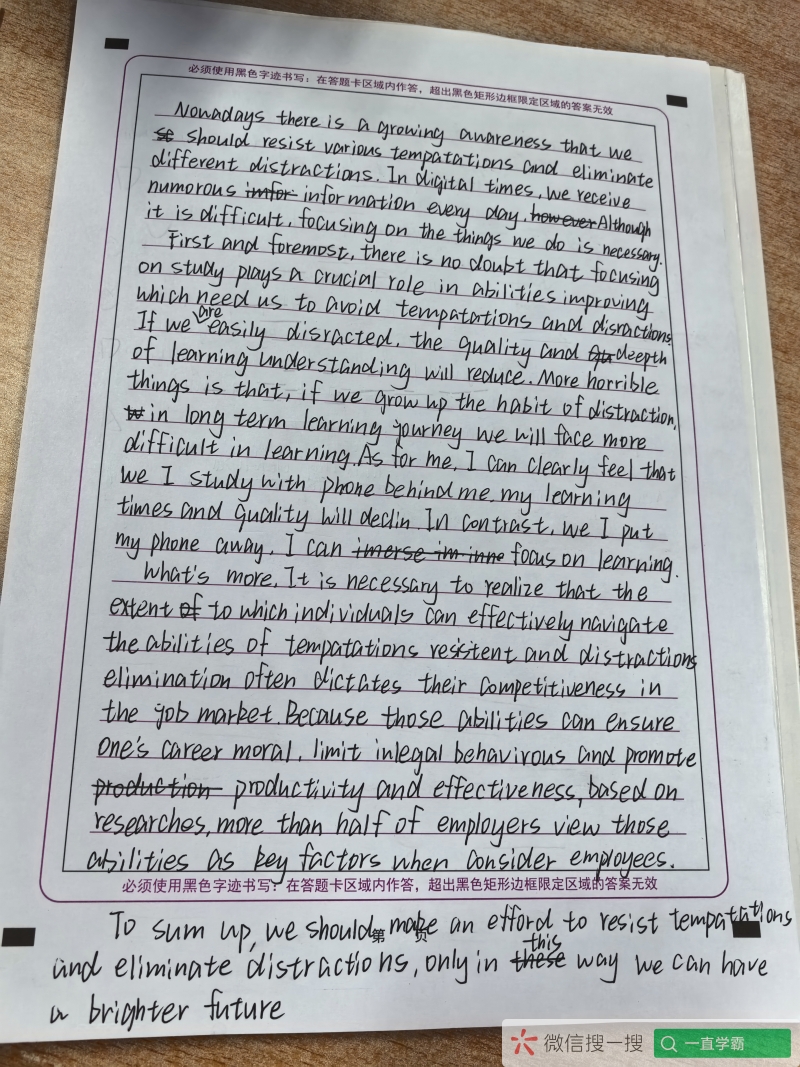 必须使用黑色字迹书写：在答题卡区域内作答，超出黑色矩形边框限定区域的答案无效
Nowadays there is a growing awareness that we
should resist various tempatations and eliminate
different distractions. In digital times, we receive
numorous imfor information every day, however Although
it is difficult, focusing on the things we do is necessary.
First and foremost, there is no doubt that focusing
on study plays a crucial role in abilities improving
which need us to avoid tempatations and disractions.
If we are easily disracted, the quality and qu deepth
of learning understanding will reduce. More horrible
things is that, if we grow up the habit of distraction,
in long term learning journey we will face more
difficult in learning. As for me, I can clearly feel that
we I study with phone behind me, my learning
times and quality will declin. In contrast, we I put
my phone away, I can imerse im inne focus on learning.
What's more, It is necessary to realize that the
extent of to which individuals can effectively navigate
the abilities of tempatations resistent and distractions
elimination often dictates their competitiveness in
the job market. Because those abilities can ensure
one's career moral, limit inlegal behavirous and promote
production productivity and effectiveness, based on
researches, more than half of employers view those
abilities as key factors when consider employees.
必须使用黑色字迹书写：在答题卡区域内作答，超出黑色矩形边框限定区域的答案无效
第 页
To sum up, we should make an efford to resist tempatations
and eliminate distractions, only in these this way we can have
a brighter future
微信搜一搜 一直学霸